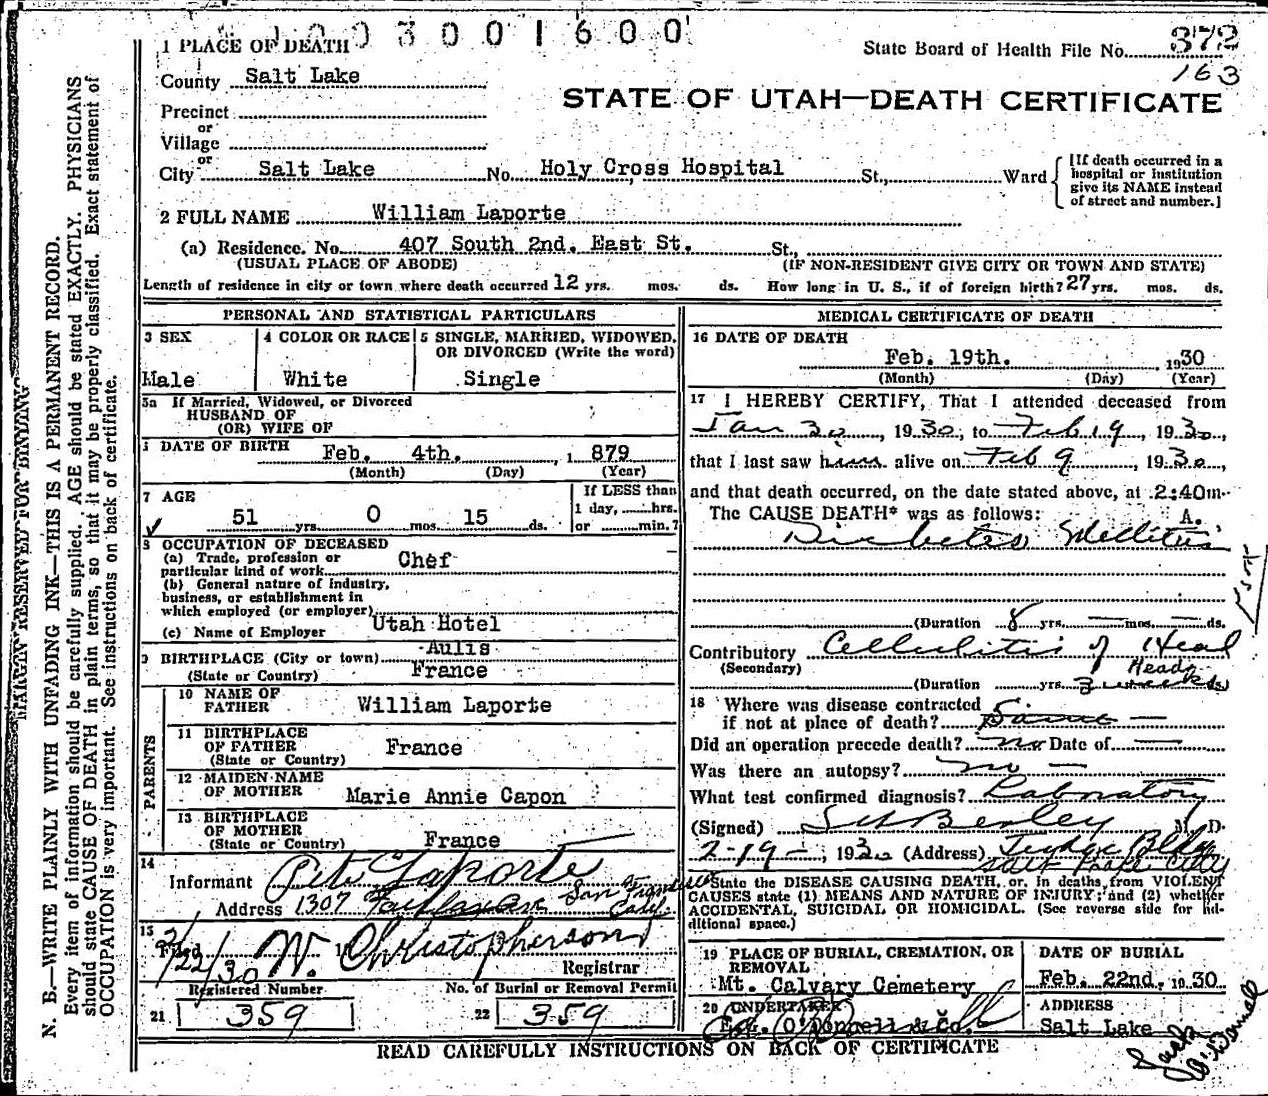 003001600
1 PLACE OF DEATH
State Board of Health File No. 372
163
County Salt Lake
STATE OF UTAH—DEATH CERTIFICATE
Precinct
or
Village
or
City Salt Lake No. Holy Cross Hospital St., Ward
[If death occurred in a
hospital or institution
give its NAME instead
of street and number.]
2 FULL NAME William Laporte
(a) Residence. No. 407 South 2nd. East St. St.,
(USUAL PLACE OF ABODE) (IF NON-RESIDENT GIVE CITY OR TOWN AND STATE)
Length of residence in city or town where death occurred 12 yrs. mos. ds. How long in U. S., if of foreign birth? 27 yrs. mos. ds.
PERSONAL AND STATISTICAL PARTICULARS
3 SEX
Male
4 COLOR OR RACE
White
5 SINGLE, MARRIED, WIDOWED,
OR DIVORCED (Write the word)
Single
5a If Married, Widowed, or Divorced
HUSBAND OF
(OR) WIFE OF
DATE OF BIRTH Feb. 4th. , 1 879
(Month) (Day) (Year)
7 AGE
51 yrs. 0 mos. 15 ds.
If LESS than
1 day, hrs.
or min.?
8 OCCUPATION OF DECEASED
(a) Trade, profession or
particular kind of work Chef
(b) General nature of industry,
business, or establishment in
which employed (or employer)
(c) Name of Employer Utah Hotel
9 BIRTHPLACE (City or town) Aulis
(State or Country) France
PARENTS
10 NAME OF
FATHER William Laporte
11 BIRTHPLACE
OF FATHER France
(State or Country)
12 MAIDEN NAME
OF MOTHER Marie Annie Capon
13 BIRTHPLACE
OF MOTHER
(State or Country) France
14
Informant Pete Laporte
Address 1307 Fairfax Ave San Francisco
Calif.
15
Filed 2/22/30 W. Christopherson
Registrar
Registered Number No. of Burial or Removal Permit
21 359 22 359
MEDICAL CERTIFICATE OF DEATH
16 DATE OF DEATH
Feb. 19th. 1930
(Month) (Day) (Year)
17 I HEREBY CERTIFY, That I attended deceased from
Jan 30, 1930, to Feb 19, 1930,
that I last saw him alive on Feb 9, 1930,
and that death occurred, on the date stated above, at 2:40 m.
The CAUSE DEATH* was as follows: A.
Diabetes Mellitus
(Duration 8 yrs. — mos. — ds.
Contributory Cellulitis of Head
(Secondary) Head
(Duration yrs. 3 weeks ds.
18 Where was disease contracted
if not at place of death? Same —
Did an operation precede death? no Date of —
Was there an autopsy? no —
What test confirmed diagnosis? Laboratory
(Signed) M. D.
2-19-, 1930 (Address) Judge Bldg
Salt Lake City
*State the DISEASE CAUSING DEATH, or, in deaths, from VIOLENT
CAUSES state (1) MEANS AND NATURE OF INJURY; and (2) whether
ACCIDENTAL, SUICIDAL OR HOMICIDAL. (See reverse side for additional space.)
19 PLACE OF BURIAL, CREMATION, OR
REMOVAL
Mt. Calvary Cemetery
DATE OF BURIAL
Feb. 22nd. 1930
20 UNDERTAKER
E.G. O'Donnell & Co.
ADDRESS
Salt Lake
READ CAREFULLY INSTRUCTIONS ON BACK OF CERTIFICATE
MARGIN RESERVED FOR BINDING
N. B.—WRITE PLAINLY WITH UNFADING INK—THIS IS A PERMANENT RECORD.
Every item of information should be carefully supplied. AGE should be stated EXACTLY. PHYSICIANS
should state CAUSE OF DEATH in plain terms, so that it may be properly classified. Exact statement of
OCCUPATION is very important. See instructions on back of certificate.